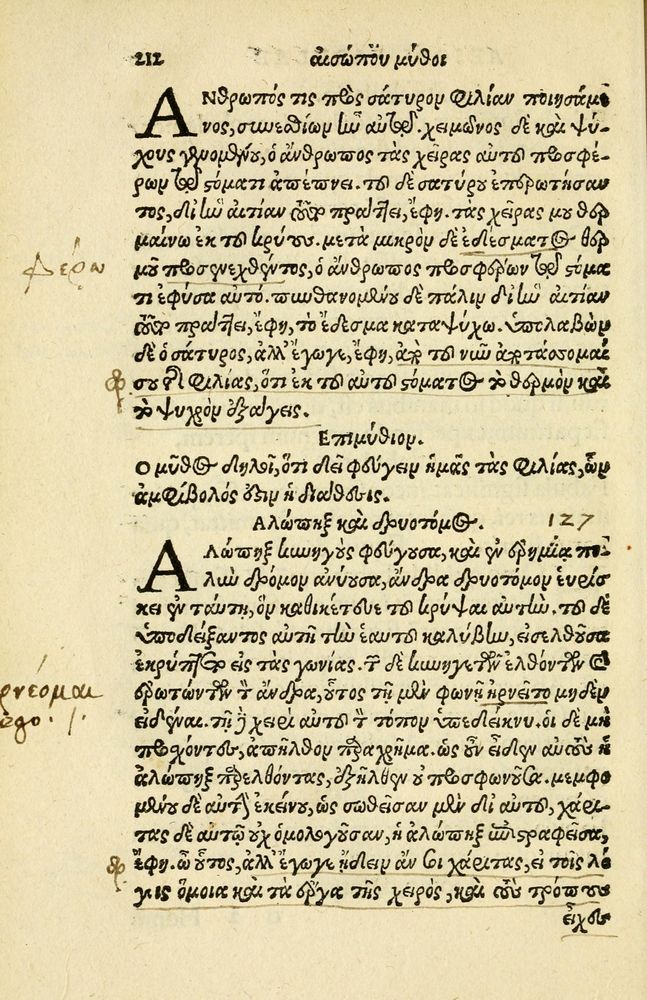 212 αισώπου μύθοι
ΑΝθρωπός τις πρὸς σάτυρον φιλίαν ποιησάμε
νος, συνεσθίων ἦν αὐτῷ. χειμῶνος δὲ καὶ ψύ-
χους γενομένου, ὁ ἄνθρωπος τὰς χεῖρας αὐτοῦ προσφέ-
ρων τῷ στόματι ἀπέπνει. τοῦ δὲ σατύρου ἐπερωτήσαν
τος, δι' ἣν αἰτίαν τοῦτο πράττει, ἔφη. τὰς χεῖράς μου θερ
μαίνω ἐκ τοῦ κρύους. μετὰ μικρὸν δὲ ἐδέσματος θερ
μοῦ προσενεχθέντος, ὁ ἄνθρωπος προσφέρων τῷ στόμα
τι ἐφύσα αὐτό. πυνθανομένου δὲ πάλιν δι' ἣν αἰτίαν
τοῦτο πράττει, ἔφη, τὸ ἔδεσμα καταψύχω. ὑπολαβὼν
δὲ ὁ σάτυρος, ἀλλ' ἔγωγε, ἔφη, ἀπὸ τοῦ νῦν ἀποτάσσομαί
σου τῇ φιλίᾳ, ὅτι ἐκ τοῦ αὐτοῦ στόματος τὸ θερμὸν καὶ
τὸ ψυχρὸν ἐξάγεις.
Επιμύθιον.
Ο μῦθος δηλοῖ, ὅτι δεῖ φεύγειν ἡμᾶς τὰς φιλίας, ὧν
ἀμφίβολός ἐστιν ἡ διάθεσις.
Αλώπηξ καὶ δρυοτόμος. 127
ΑΛώπηξ κυνηγοὺς φεύγουσα, καὶ ἐν ἐρημίᾳ πολ
λὺν δρόμον ἀνύουσα, ἄνδρα δρυοτόμον εὑρίσ
κει ἐν ταύτῃ, ὃν καθικέτευε τοῦ κρύψαι αὐτήν. τοῦ δὲ
ὑποδείξαντος αὐτῇ τὴν ἑαυτοῦ καλύβην, εἰσελθοῦσα
ἐκρύπτετο εἰς τὰς γωνίας. τῶν δὲ κυνηγετῶν ἐλθόντων καὶ
ἐρωτώντων τὸν ἄνδρα, οὗτος τῇ μὲν φωνῇ ἠρνεῖτο μηδὲν
εἰδέναι. τῇ δὲ χειρὶ αὐτοῦ τὸν τόπον ὑπεδείκνυ. οἱ δὲ μὴ
προσχόντες, ἀπῆλθον παραχρῆμα. ὡς οὖν εἶδεν αὐτοὺς ἡ
ἀλώπηξ παρελθόντας, ἐξῆλθεν οὐ προσφωνοῦσα. μεμφο
μένου δὲ αὐτὴν ἐκείνου, ὡς σωθεῖσαν μὲν δι' αὐτοῦ, χάρι-
τας δὲ αὐτῷ οὐχ ὁμολογοῦσαν, ἡ ἀλώπηξ ἐπιστραφεῖσα,
ἔφη. ὦ οὗτος, ἀλλ' ἔγωγε ᾔδειν ἄν σοι χάριτας, εἰ τοῖς λό
γοις ὅμοια καὶ τὰ ἔργα τῆς χειρὸς, καὶ τοὺς τρόπους
εἶχες